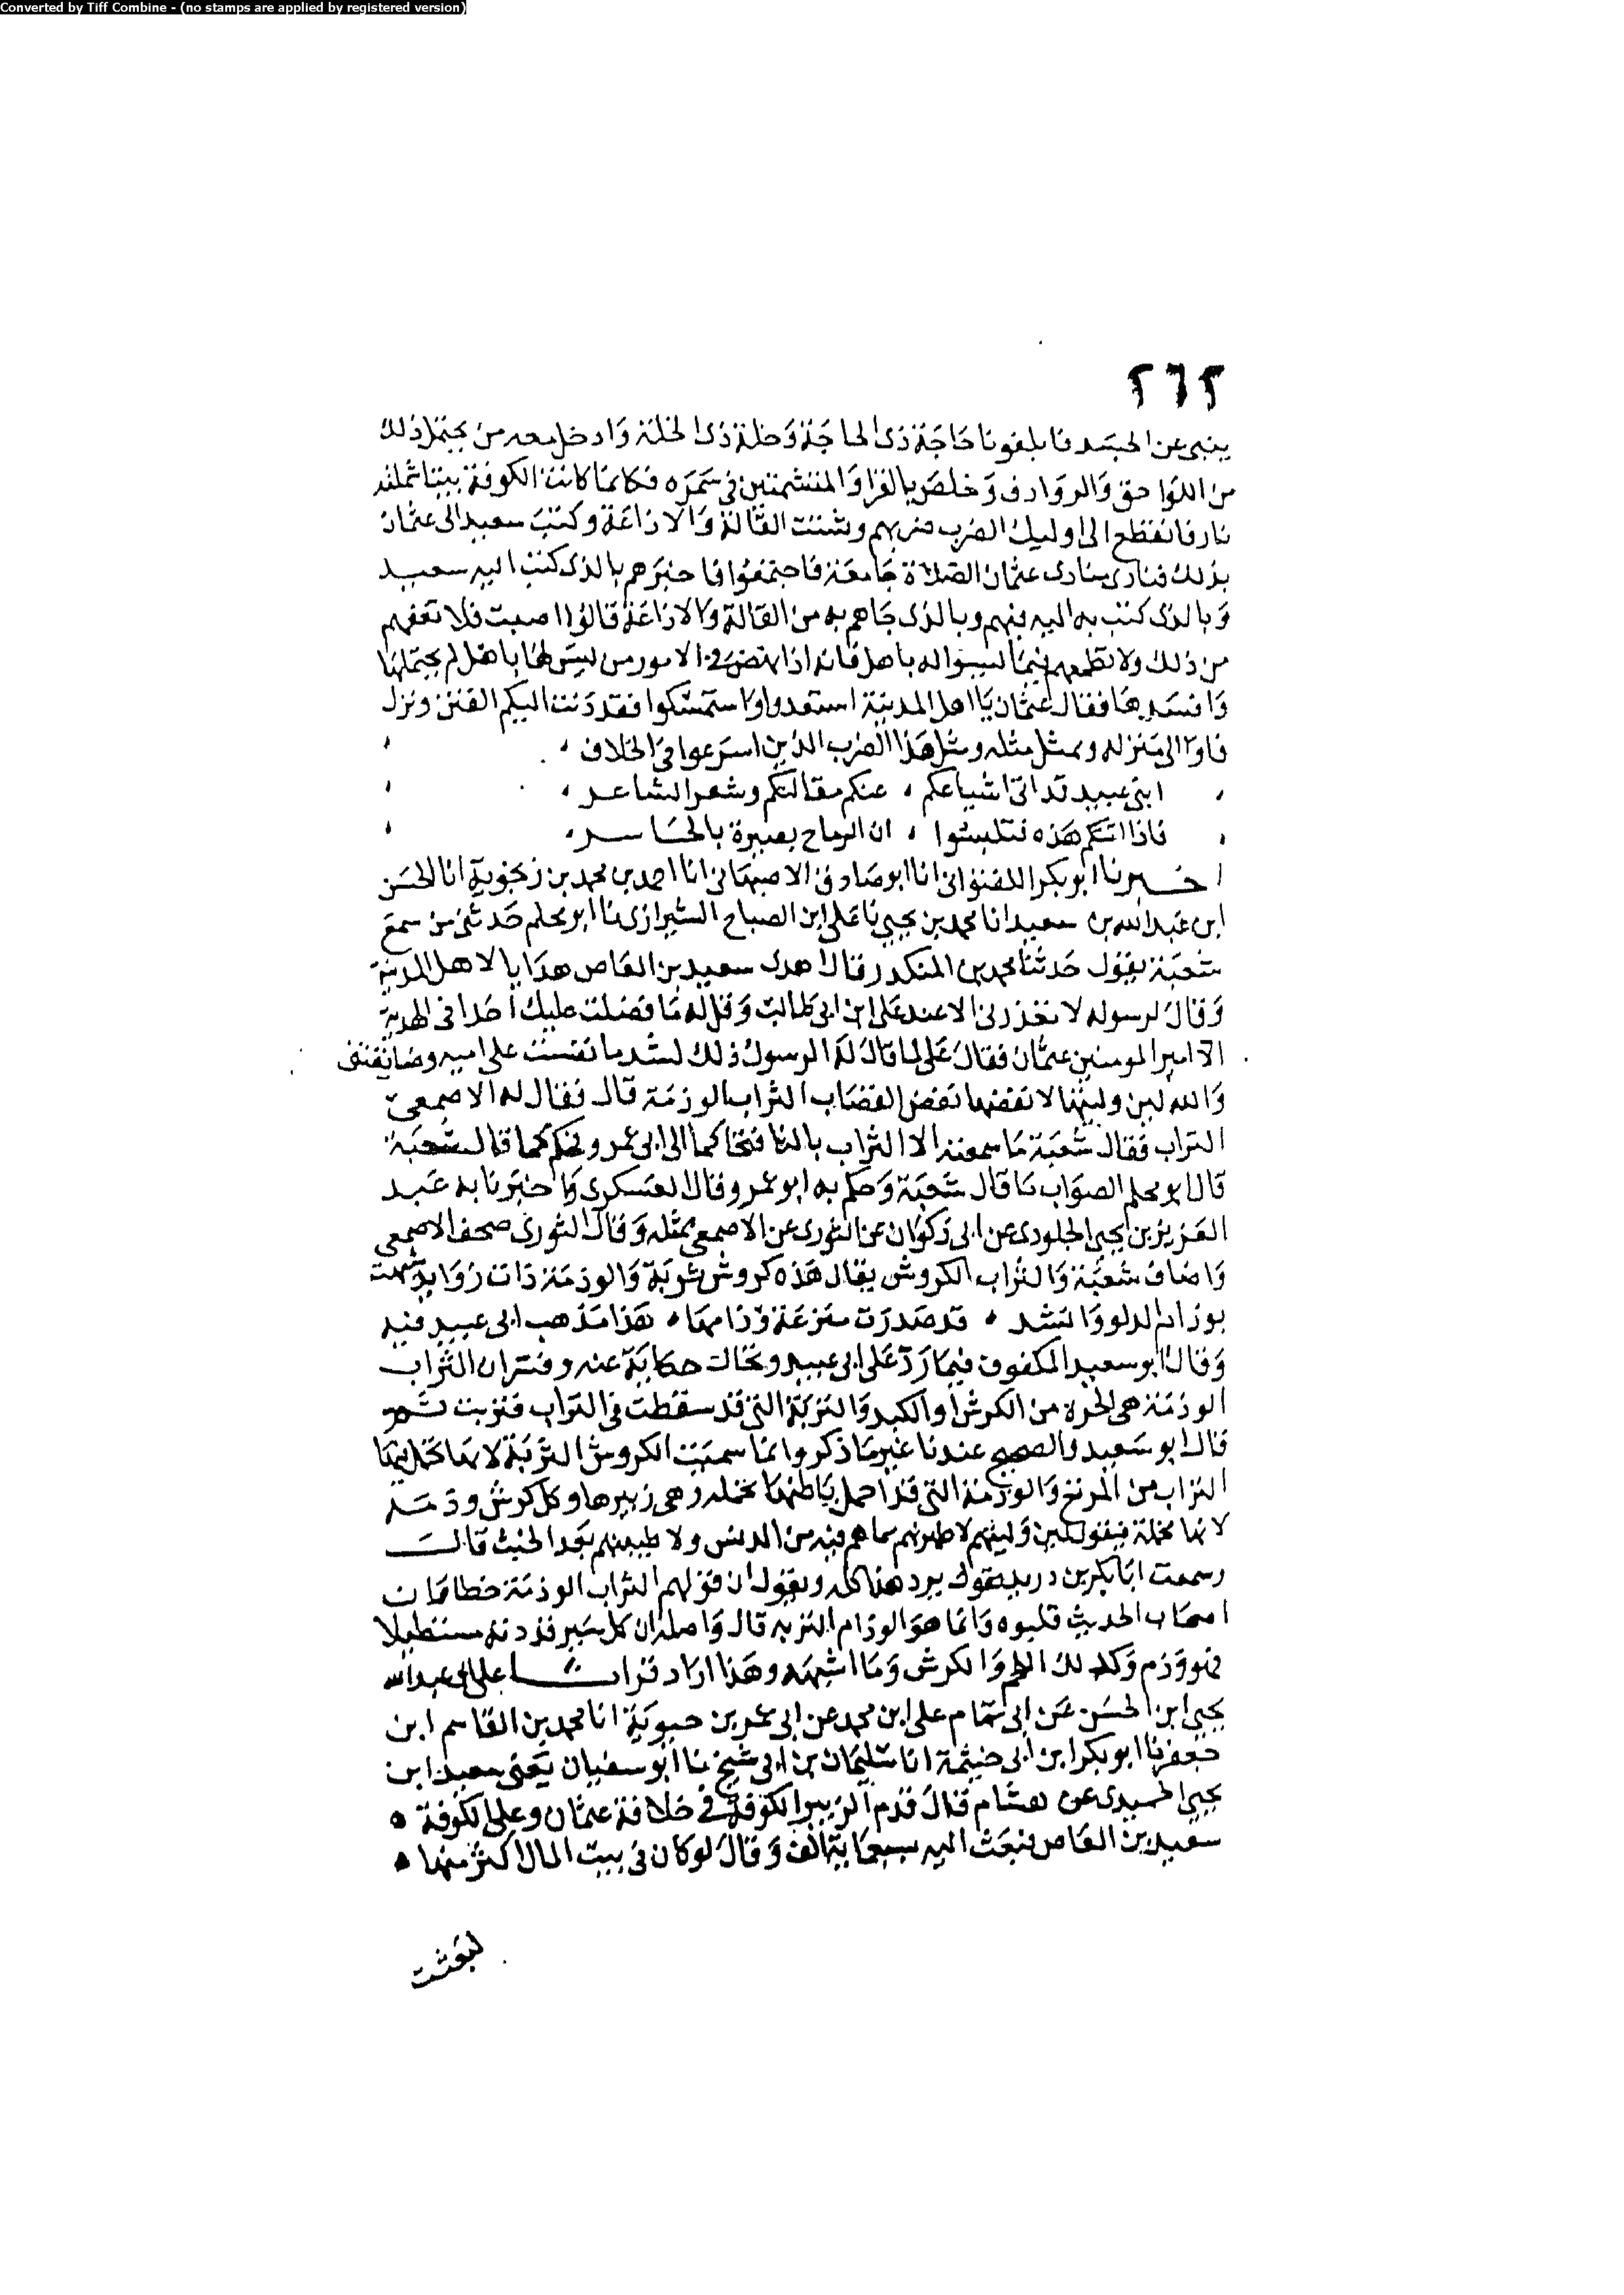 Converted by Tiff Combine - (no stamps are applied by registered version)
٢٦٢
ينبى عن الجسد فابلغونا حاجة ذى الحاجة وخلة ذى الخلة وادخل معه من يحتمل ذلك
من اللواحق والروادف وخلص بالقرا والمتشمتين فى سمره فكانما كانت الكوفة يبسا شملته
نار فانقطع الى اوليك الضرب ضربهم وفشت القالة والاذاعة وكتب سعيد الى عثمان
بذلك فنادى منادى عثمان الصلاة جامعة فاجتمعوا فاخبرهم بالذى كتب اليه سعيد
وبالذى كتب به اليه فيهم وبالذى جاهم به من القالة والاذاعة قالوا اصبت فلا تعفهم
من ذلك ولا تطمعهم فيما ليسوا له باهل فانه اذا نهض فى الامور من ليس لها باهل لم يحتملها
وافسدها فقال عثمان يا اهل المدينة استعدوا واستمسكوا فقد دنت اليكم الفتن ونزل
فاوا الى منزله وتمثل مثله ومثل هذا الضرب الذين اسرعوا فى الخلاف
ابنى عبيد قد اتى اشياعكم ، عنكم مقالتكم وشعر الشاعر ،
فاذا اتتكم هذه فتلبسوا ، ان الرماح بصيرة بالحاسر ،
اخبرنا ابو بكر اللفتوانى انا ابو صادق الاصبهانى انا احمد بن محمد بن زنجوية انا الحسن
ابن عبد الله بن سعيد انا محمد بن يحيى نا على ابن الصباح الشيرازى نا ابو محلم حدثنى من سمع
شعبة يقول حدثنا محمد بن المنكدر قال اهدى سعيد بن العاص هدايا لاهل المدينة
وقال لرسوله لا تعذرنى الا عند على ابن ابى طالب وقل له ما فضلت عليك احدا فى الهدية
الا امير المومنين عثمان فقال على لما قال له الرسول ذلك لشد ما نفست على اميه
والله لين وليتها لانفضنها نفض القصاب التراب الوذمة قال فقال له الاصمعى
التراب فقال شعبة ما سمعته الا التراب بالثا فتحاكما الى ابى عمرو فحكم كما قال شعبة
قال ابو محلم الصواب ما قال شعبة وحكم به ابو عمرو قال العسكرى واخبرنا به عبد
العزيز بن يحيى الجلودى عن ابى ذكوان عن الثورى عن الاصمعى بمثله وقال الثورى صحف الاصمعى
واصاب شعبة والثراب الكروش يقال هذه كروش ثربة والوذمة ذات زوايد شبهت
بوذام الدلو وانشد ، قد صدرت منزعة وذامها ، هذا مذهب ابى عبيد فيه
وقال ابو سعيد المكفوف فيما رد على ابى عبيد حكاية عنه وفسر ان الثراب
الوذمة هى الحزة من الكرش او الكبد والتربة التى قد سقطت فى التراب فتربت
قال ابو سعيد والصحيح عندنا غير ما ذكر وانما سميت الكروش التربة لانها تحمل فيها
التراب من المرتع والوذمة التى قد اخمل باطنها بخمله وهى زبيرها وكل كرش وذمة
لانها مخملة فيقول لين وليتهم لاطهرنهم مما هم فيه من الدنس ولاطيبنهم بعد الخبث قال
وسمعت ابا بكر بن دريد يقول يرد هذا كله ويقول ان قولهم التراب الوذمة خطا فان
اصحاب الحديث قلبوه وانما هو الوذام التربه قال واصله ان كل سير قددته مستطيلا
فهو وذم وكذلك اللحم والكرش وما اشبهه وهذا اراد قرات على ابى عبد الله
يحيى ابن الحسن عن ابى تمام على ابن محمد عن ابى عمر بن حيوية انا محمد بن القاسم ابن
جعفر نا ابو بكر ابن ابى خيثمة انا سليمان بن ابى شيخ نا ابو سفيان يعنى سعيد ابن
يحيى الحميرى عن هشام قال قدم الزبير الكوفة فى خلافة عثمان وعلى الكوفة
سعيد بن العاص فبعث اليه بسبعماية الف وقال لو كان فى بيت المال اكثر منها
لبعثت